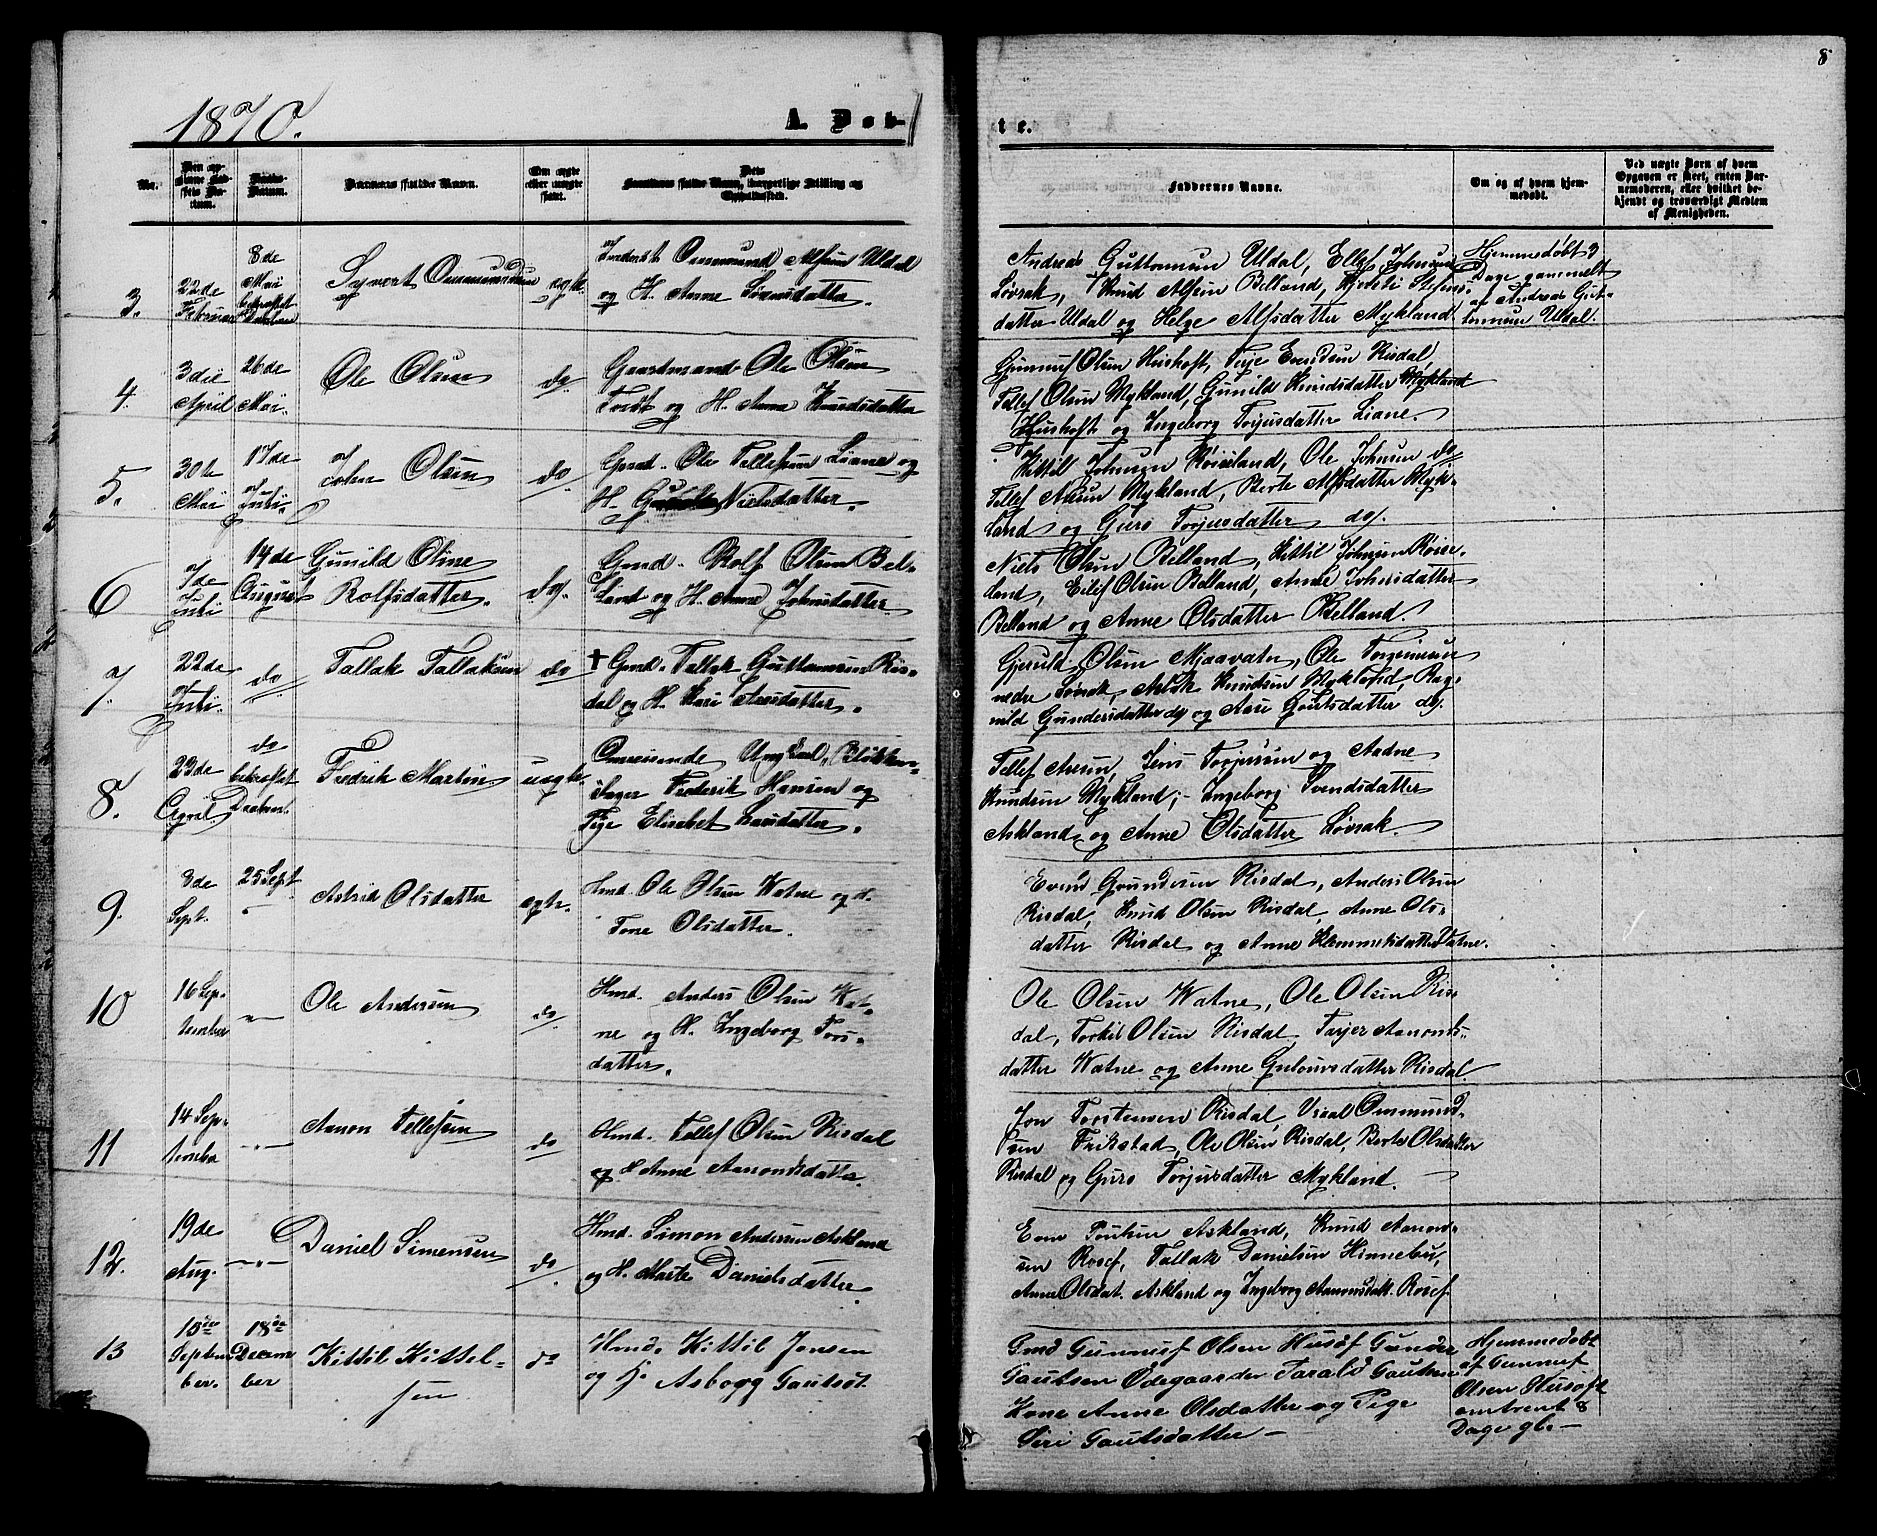 8
1870.
A. Døb-
te.
No.
Den op-
givne Fød-
sels Da-
tum.
Daabs-
Datum.
Barnets fulde Navn.
Om ægte
eller uægte
født.
Dets
Forældres fulde Navn, borgerlige Stilling og
Opholdssted.
Faddernes Navne.
Om og af hvem hjem-
medøbt.
Ved uægte Børn af hvem
Opgaven er skeet, enten Bar-
nemoderen, eller hvilket be-
kjendt og troværdigt Medlem
af Menigheden.
3.
22de
Februar
8de
Mai
bekræftet
Daaben
Syvert Ommundsen
ægte
Inderst Ommund Alfsen Uldal
og H. Anne Svensdatter.
Andreas Guttormsen Uldal, Ellef Johnsen
Løvrak, Knud Alfsen Belland,
datter Uldal og Helge Alfsdatter Mykland.
Hjemmedøbt 3
Dage gammelt
af Andreas Gut-
tormsen Uldal.
4.
3die
April
26de
Mai.
Ole Olsen
do
Gaardmand Ole Olsen
og H. Anne Knudsdatter
Gunnuf Olsen Huskoft, Terje Evendsen Risdal
Tellef Olsen Mykland, Gunild Knudsdatter Mykland
Huskoft og Ingeborg Torjusdatter Liane.
5.
30te
Mai
17de
Juli.
John Olsen
do
Gmd. Ole Tellefsen Liane og
H. Nielsdatter.
Kittil Johnsen Røiseland, Ole Johnsen do
Tellef Aasen Mykland, Berte Alfsdatter Myk-
land og Guro Torjusdatter do.
6
7de
Juli
14de
August
Gunild Oline
Rolfsdatter.
do.
Gmd. Rolf Olsen Bel-
land og H. Anne Johnsdatter
Niels Olsen Belland, Kittil Johnsen Røise-
land, Eilef Olsen Belland, Anne Johnsdatter
Belland og Anne Olsdatter Belland.
7.
22de
Juli.
do
Tallak Tallaksen
do
+ Gmd. Tallak Guttormsen Ris-
dal og H. Kari Aasdatter.
Gjeruld Olsen Mjaavatn, Ole Torjusen
nedre Løvrak, Aslak Knudsen Mykland, Rag-
nild Gundersdatter do og Aase Goutsdatter do.
8.
23de
April
do
bekræftet
Daaben
Fredrik Martin
uægte
Omreisende Ungkarl, Blikken-
slager Frederik Hansen og
Pige Elisabet Larsdatter.
Tellef Aasen, Jens Torjusen og Aadne
Knudsen Mykland;- Ingeborg Svendsdatter
Askland og Anne Olsdatter Løvrak.
9.
3de
Sept.
25 Sept
Astrid Olsdatter
ægte.
Hmd. Ole Olsen Watne og H.
Tone Olsdatter.
Evend Gundersen Risdal, Anders Olsen
Risdal, Knud Olsen Risdal, Anne Ols-
datter Risdal og Anne Klemmetsdatter Watne.
10
16 Sep-
tember
—"—
Ole Andersen
do
Hmd. Anders Olsen Wat-
ne og H. Ingeborg Tors-
datter.
Ole Olsen Watne, Ole Olsen Ris-
dal, Torkil Olsen Risdal, Tarjer Aanonds-
datter Watne og Anne Risdal.
11
14 Sep-
tember
—"—
Aanon Tellefsen
do
Hmd. Tellef Olsen Risdal
og H Anne Aanondsdatter.
Jon Torstensen Risdal, Ommund-
sen Frikstad, Ole Olsen Risdal, Berte Olsdatter
Risdal og Guro Torjusdatter Mykland.
12.
19de
Aug.
—"—
Daniel Simensen
do
Hmd. Simon Andersen Askland
og H. Marte Danielsdatter
Even Poulsen Askland, Knud Aanon-
sen Rosef, Tallak Danielsen Hinnebu,
Anne Olsdat. Askland og Ingeborg Aanonsdat. Rosef
13
10de
Septem-
ber.
18de
Decem-
ber
Kittil Kittel-
sen
do
Hmd. Kittil Jensen
og H. Asborg Gautsdt.
Gmd Gunnuf Olsen Husof Gunder
Gautsen Ødegaarden Tarald Gautsen
Kone Anne Olsdatter og Pige
Siri Gautsdatter —
Hjemmedøbt
af Gunnuf
Olsen Husoft
omtrent 8
Dage gl. —